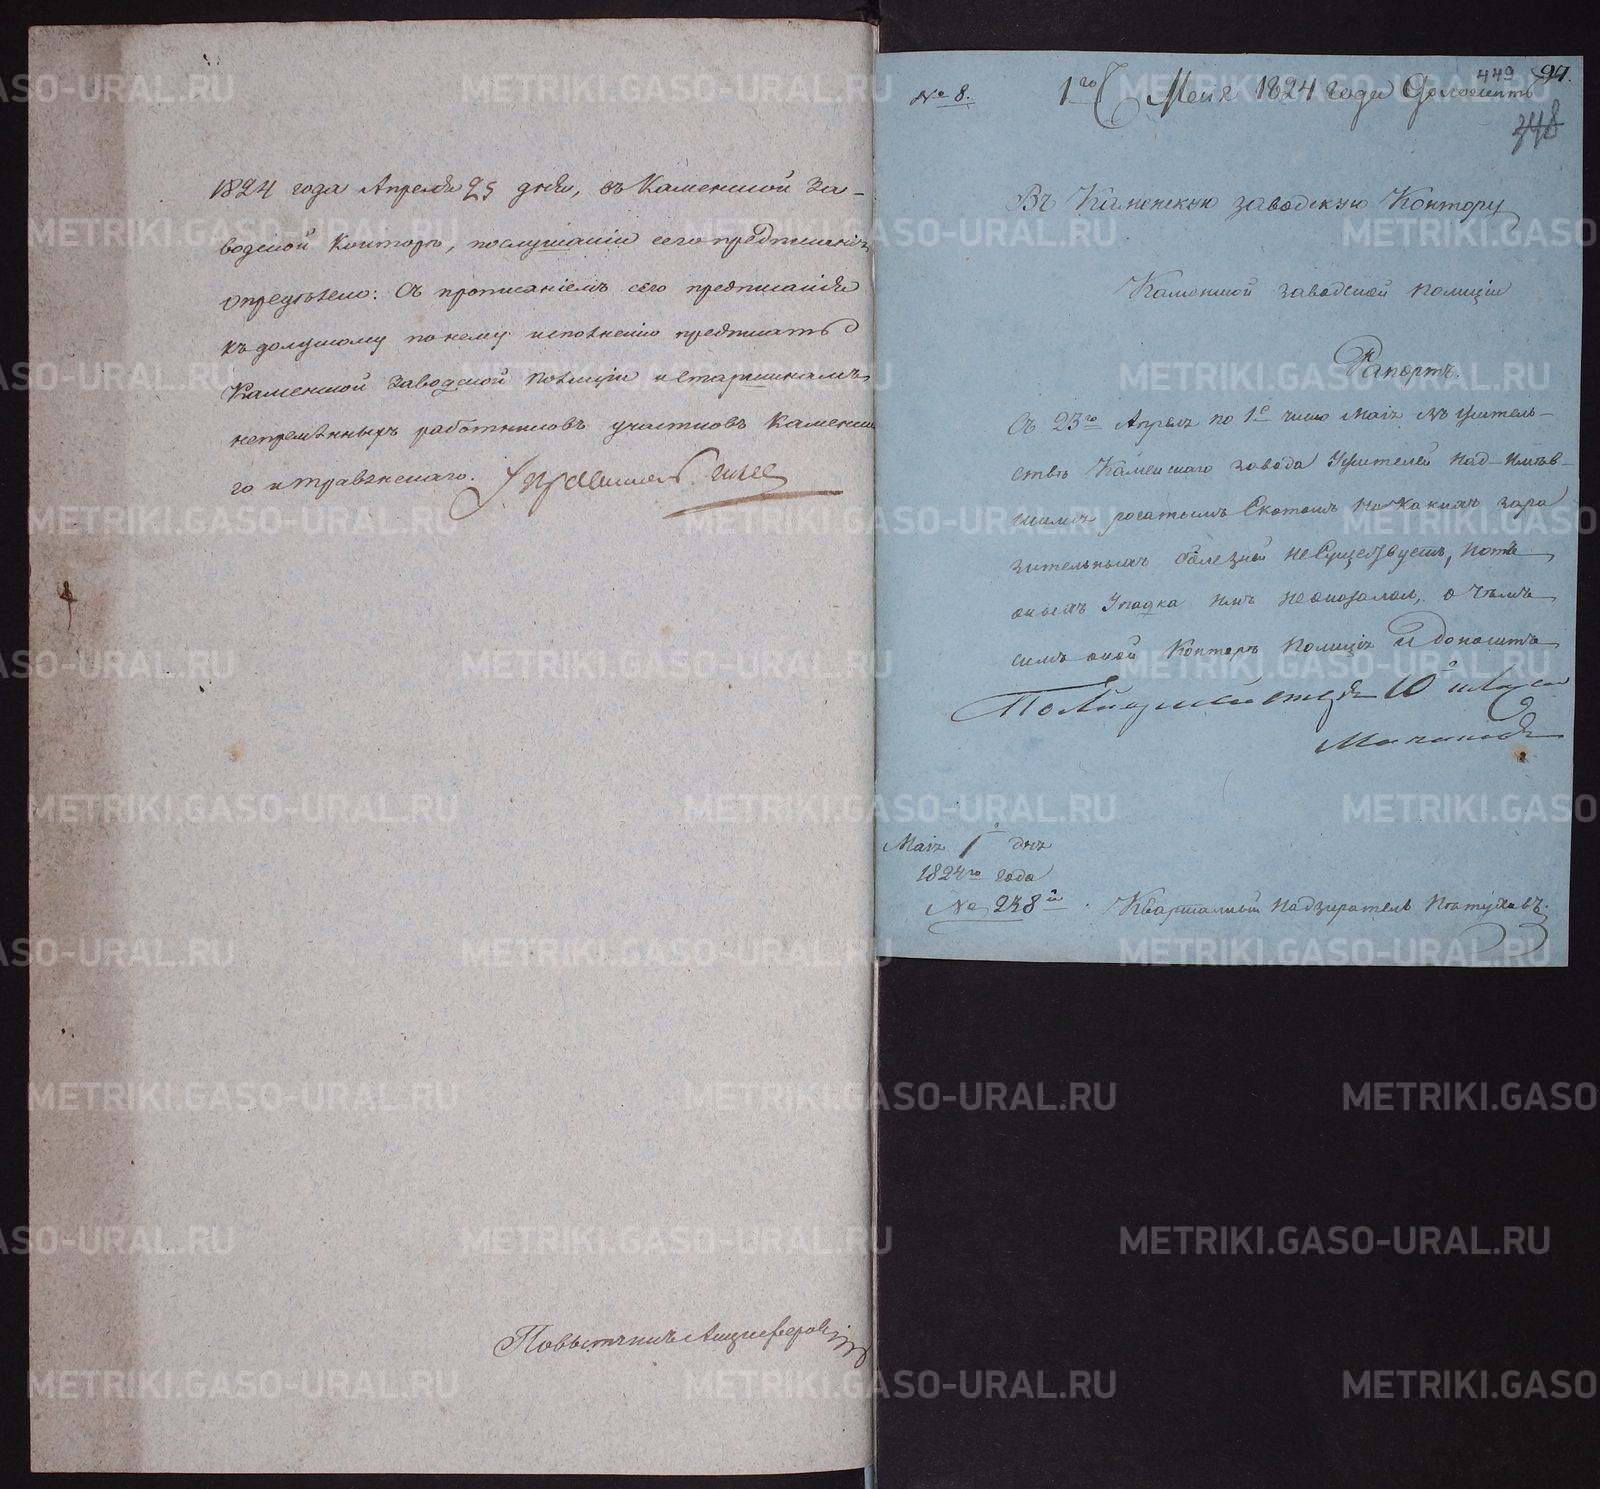 1824 года Апреля 25 дня, въ Каменской За-
водской Конторѣ, послушании сего предписанія
определѣно: Съ прописаніемъ сего предписанія
къ должному по нему исполнению предписать
Каменской заводской полиціи и старшинамъ
непремѣнныхъ работниковъ участковъ Каменска
го и травянскаго.
Повытчикъ Анцыферовъ
94.
449
№ 8. 1го Мая 1824 года Доложить
448
Въ Каменскую заводскую Контору
Каменской заводской полиціи
Рапортъ.
Съ 23го Апреля по 1е число Маія въ жительствѣ
ствѣ Каменскаго завода Жителей над имѣв-
шимъ рогатымъ скотомъ ни какихъ зара
зительныхъ болезней не существуетъ, потѣ
онымъ упадка имъ неоказалось, о чѣмъ
симъ оной Конторѣ полиція и доноситъ
Полицмейстеръ 10го класа
Маія 1 дня
1824го года
№ 238й
Квартальный надзиратель Пѣтуховъ.
METRIKI.GASO-URAL.RU